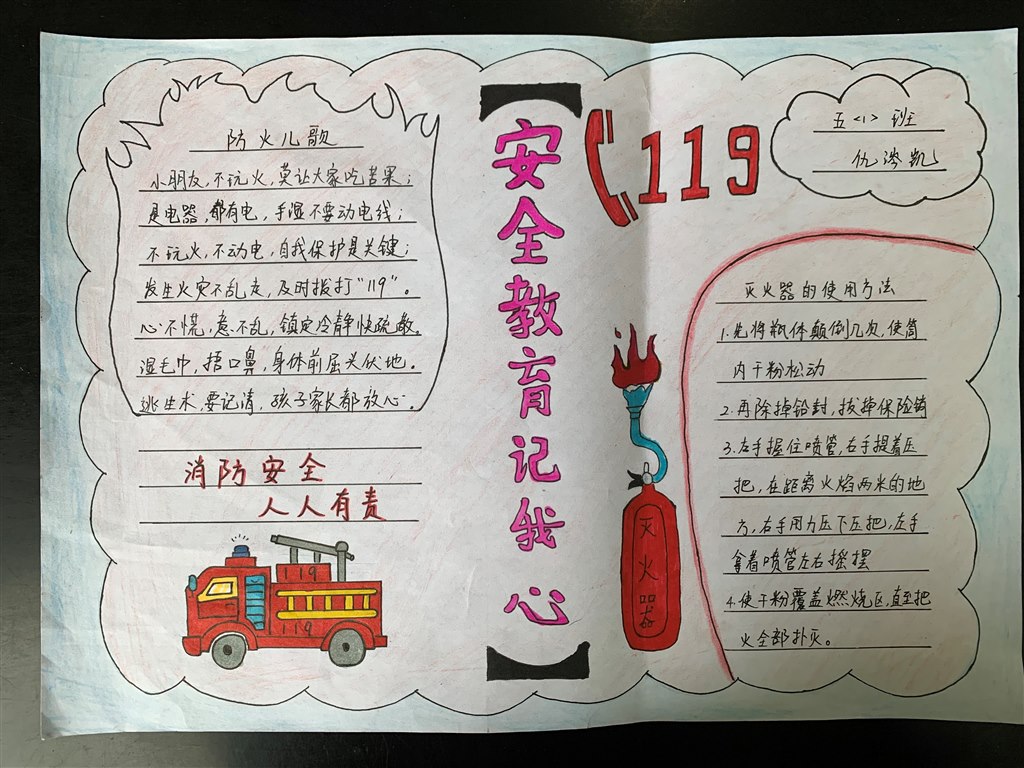 防火儿歌
小朋友,不玩火,莫让大家吃苦果;
是电器,都有电,手湿不要动电线;
不玩火,不动电,自我保护是关键;
发生火灾不乱走,及时拨打"119"。
心不慌,意不乱,镇定冷静快疏散。
湿毛巾,捂口鼻,身体前屈头伏地。
逃生术,要记清,孩子家长都放心。
消防安全
人人有责
119
119
安全教育记我心
119
五<1>班
仇涔凯
灭火器
灭火器的使用方法
1.先将瓶体颠倒几次,使筒
内干粉松动
2.再除掉铅封,拔掉保险销
3.左手握住喷管,右手提着压
把,在距离火焰两米的地
方,右手用力压下压把,左手
拿着喷管左右摇摆
4.使干粉覆盖燃烧区,直至把
火全部扑灭。